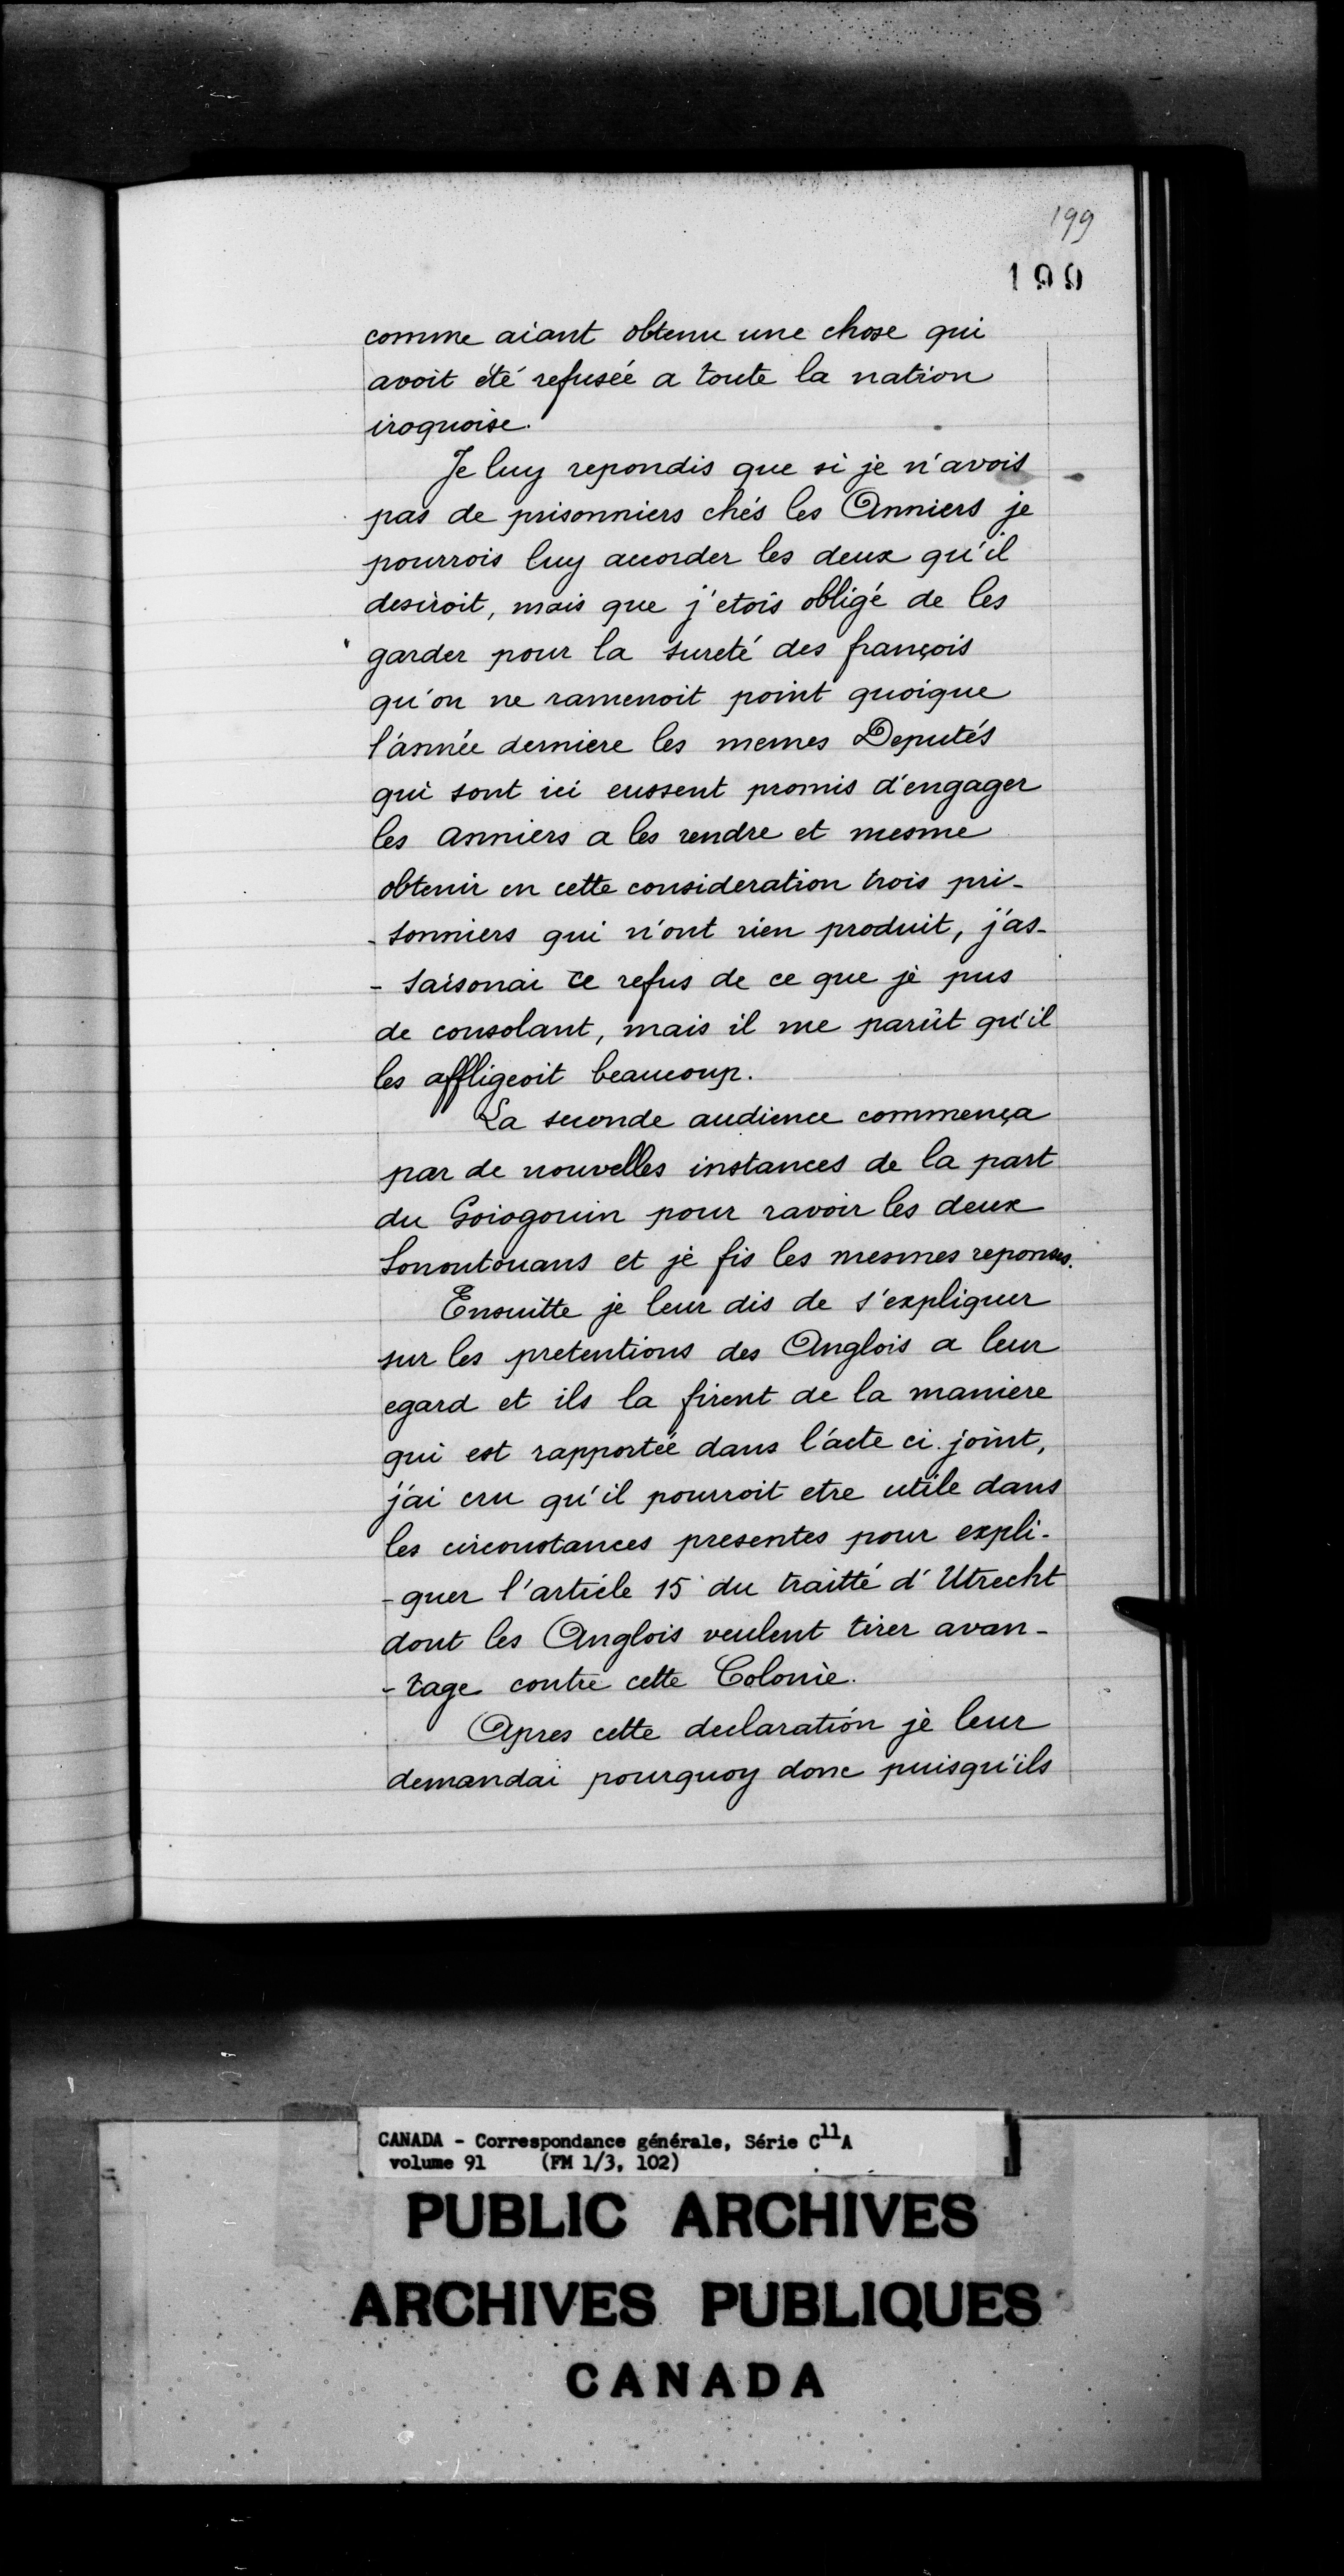 199
199
comme aiant obtenu une chose qui
avoit été refusée a toute la nation
iroquoise.
Je luy repondis que si je n'avois
pas de prisonniers chés les Anniers je
pourrois luy accorder les deux qu'il
desiroit, mais que j'etois obligé de les
garder pour la sureté des françois
qu'on ne ramenoit point quoique
l'année derniere les memes Deputés
qui sont ici eussent promis d'engager
les anniers a les rendre et mesme
obtenir en cette consideration trois pri-
-sonniers qui n'ont rien produit, j'as-
-saisonai ce refus de ce que je pus
de consolant, mais il me parût qu'il
les affligeoit beaucoup.
La seconde audience commença
par de nouvelles instances de la part
du Goiogouin pour ravoir les deux
Sonontouans et je fis les mesmes reponses.
Ensuitte je leur dis de s'expliquer
sur les pretentions des Anglois a leur
egard et ils la firent de la maniere
qui est rapportée dans l'acte ci joint,
j'ai cru qu'il pourroit etre utile dans
les circonstances presentes pour expli-
-quer l'article 15 du traitté d'Utrecht
dont les Anglois veulent tirer avan-
-tage contre cette Colonie.
Apres cette declaration je leur
demandai pourquoy donc puisqu'ils
CANADA - Correspondance générale, Série C11A
volume 91 (FM 1/3, 102)
PUBLIC ARCHIVES
ARCHIVES PUBLIQUES
CANADA